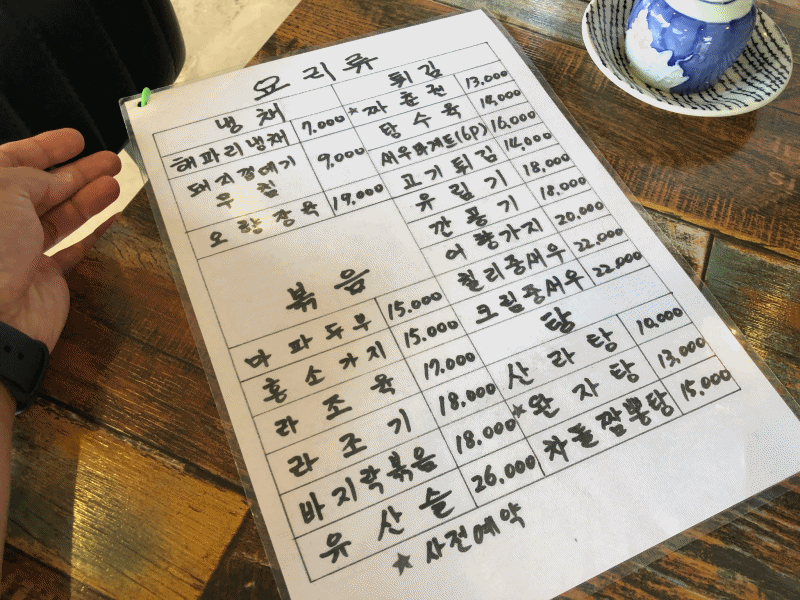 요리류
냉채
해파리냉채 7,000
돼지껍데기
무침 9,000
오향장육 19,000
볶음
마파두부 15,000
홍소가지 15,000
라조육 17,000
라조기 18,000
바지락볶음 18,000
유산슬 26,000
튀김
★짜춘권 13,000
탕수육 14,000
새우바게트(6P) 16,000
고기튀김 14,000
유림기 18,000
깐풍기 18,000
어향가지 20,000
칠리중새우 22,000
크림중새우 22,000
탕
산라탕 10,000
★완자탕 13,000
차돌짬뽕탕 15,000
★사전예약